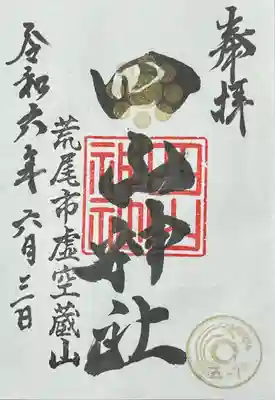 奉拝
四山神社
荒尾市虚空蔵山
令和六年六月三日
四山神社